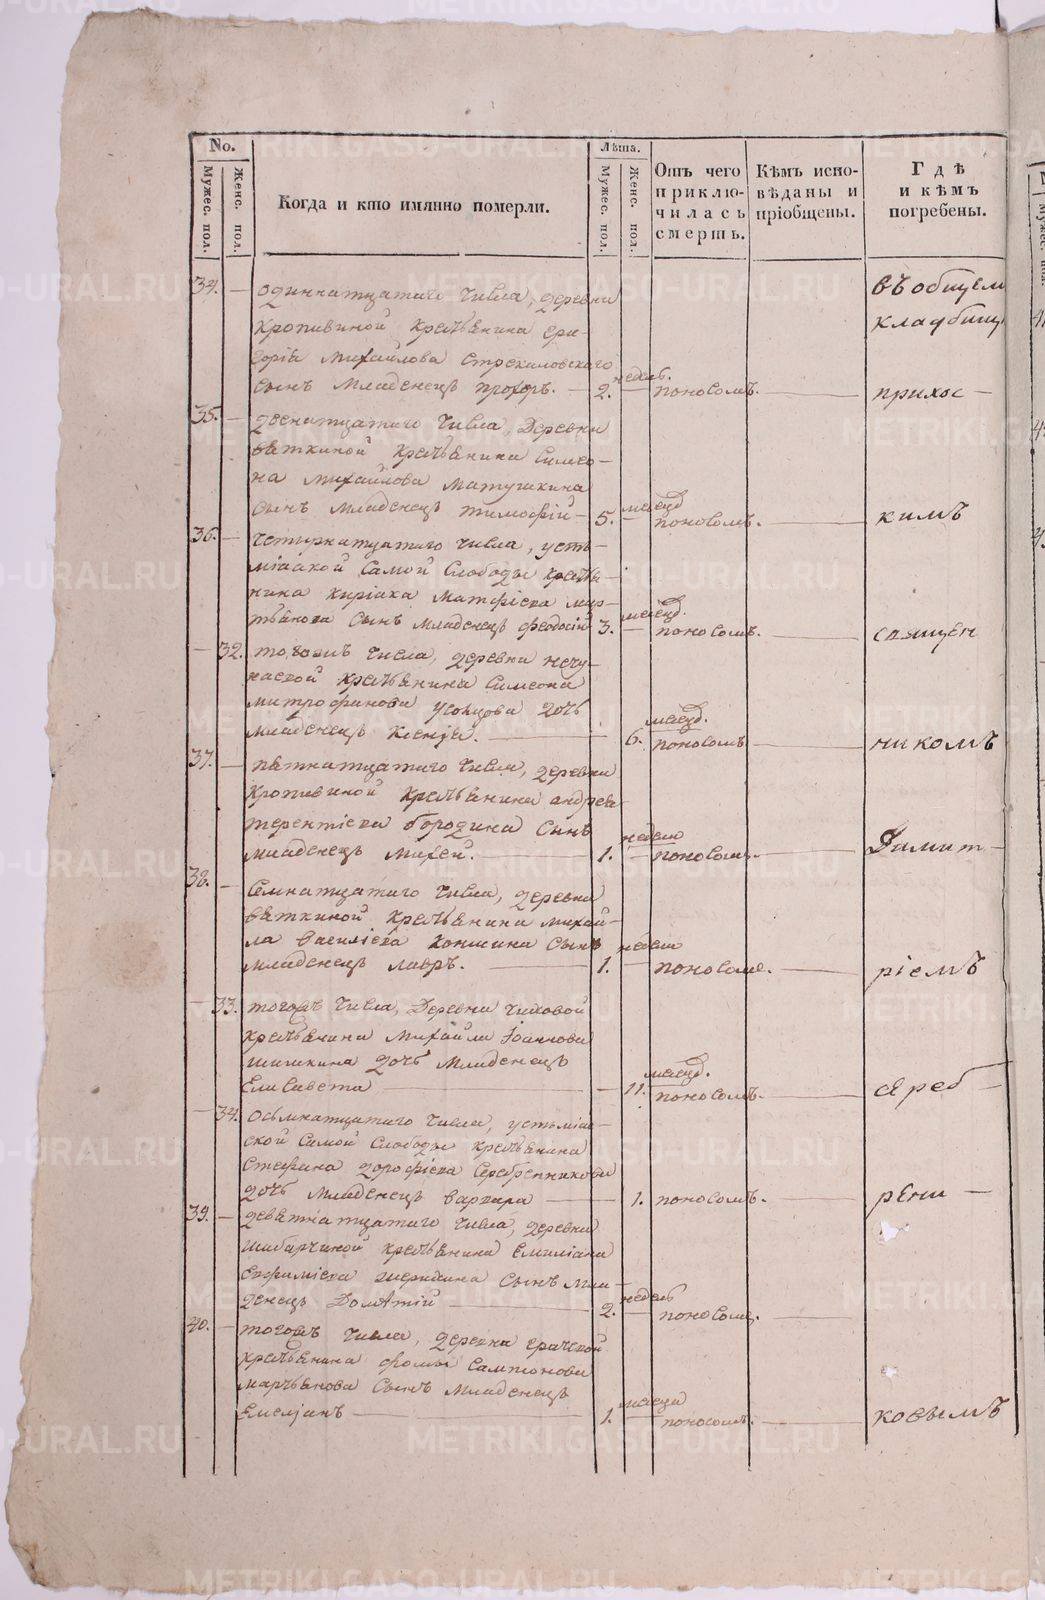 No.
Лѣта.
Мужес. пол.
Женс. пол.
Когда и кто имянно померли.
Мужес. пол.
Женс. пол.
Отъ чего приклю-
чилась смерть.
Кѣмъ испо-
вѣданы и
пріобщены.
Гдѣ
и кѣмъ
погребены.
34. — одиннатцатаго числа, деревни въ общем
Кропивиной крестьянина Гри- кладбищѣ
горія Михайлова Стрекаловскаго
сынъ младенецъ Прохоръ. — 2. недѣль поносомъ. — прихос —
35. — двенатцатаго числа, деревни
вяткиной крестьянина Симео-
на Михайлова Матушкина
сынъ младенецъ Тимофій — 5. месяцъ поносомъ. — кимъ
36. — четырнатцатаго числа, усть-
міаской самой слободы крестья-
нина Киріака Матфіева Мар-
тьянова сынъ младенецъ Феодосій 3. месяцъ. поносомъ. — священ
32. тогожъ числа, деревни
крестьянина Симеона
Митрофанова дочь
младенецъ Ксенія. — 6. месяц. поносомъ — никомъ
37. — пятнатцатаго числа, деревни
Кропивиной крестьянина Андрея
Терентіева Бородина сынъ
младенецъ Михей. 1. недели поносомъ. — Димит —
38. — семнатцатаго числа, деревни
вяткиной крестьянина Михай-
ла Василіева Коншина сынъ
младенецъ Лавръ. — 1. недели поносомъ. — ріемъ
33. тогожъ числа, деревни чиховой
крестьянина Михайла Іоаннова
Шишкина дочь младенецъ
Елисавета — 11. месяц. поносомъ. — Сереб —
34. осьмнатцатаго числа, устьміас-
ской самой слободы крестьянина
Стефана Дорофіева Серебренникова
дочь младенецъ Варвара — 1. поносомъ. — рени —
39. — девятнатцатаго числа, деревни
Шабарчиной крестьянина Емиліана
Евфиміева сынъ мла-
денецъ Домѧтій — 2. недель поносомъ. —
40. — тогожъ числа, деревни
крестьянина Фомы Сампсонова
Мартьянова сынъ младенецъ
Емеліанъ — 1. месяца поносомъ. — ковымъ